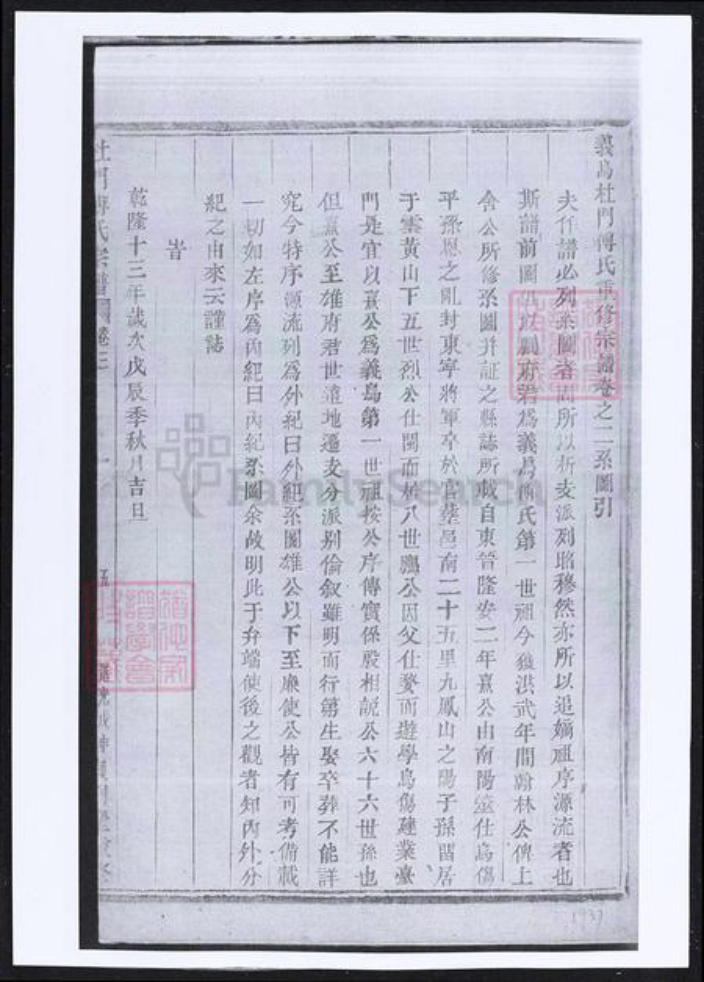 義烏杜門傅氏重修宗譜卷之二系圖引
夫作譜必列系圖者固所以析支派列昭穆然亦所以追嫡祖序源流者也
斯譜前圖 以鵬府君為義烏傅氏第一世祖今獲洪武年間翰林公俾上
舍公所修系圖并証之縣誌所載自東晉隆安二年熹公由南陽筮仕烏傷
平孫恩之亂封東寧將軍卒於官葬邑南二十五里九鳳山之陽子孫留居
于雲黃山下五世烈公仕閩而居八世鵬公因父仕婺而遊學烏傷建業臺
門是宜以熹公為義烏第一世祖按公序傳實係殷相說公六十六世孫也
但熹公至雄府君世遠地遙支分派別倫敘雖明而行第生娶卒葬不能詳
究今特序源流列為外紀曰外紀系圖雄公以下至廉使公皆有可考備載
一切如左序為內紀曰內紀系圖余故明此于弁端使後之觀者知內外分
紀之由來云謹誌
旹
乾隆十三年歲次戊辰季秋月吉旦
杜門傅氏宗譜 卷二
一
FamilySearch
1937